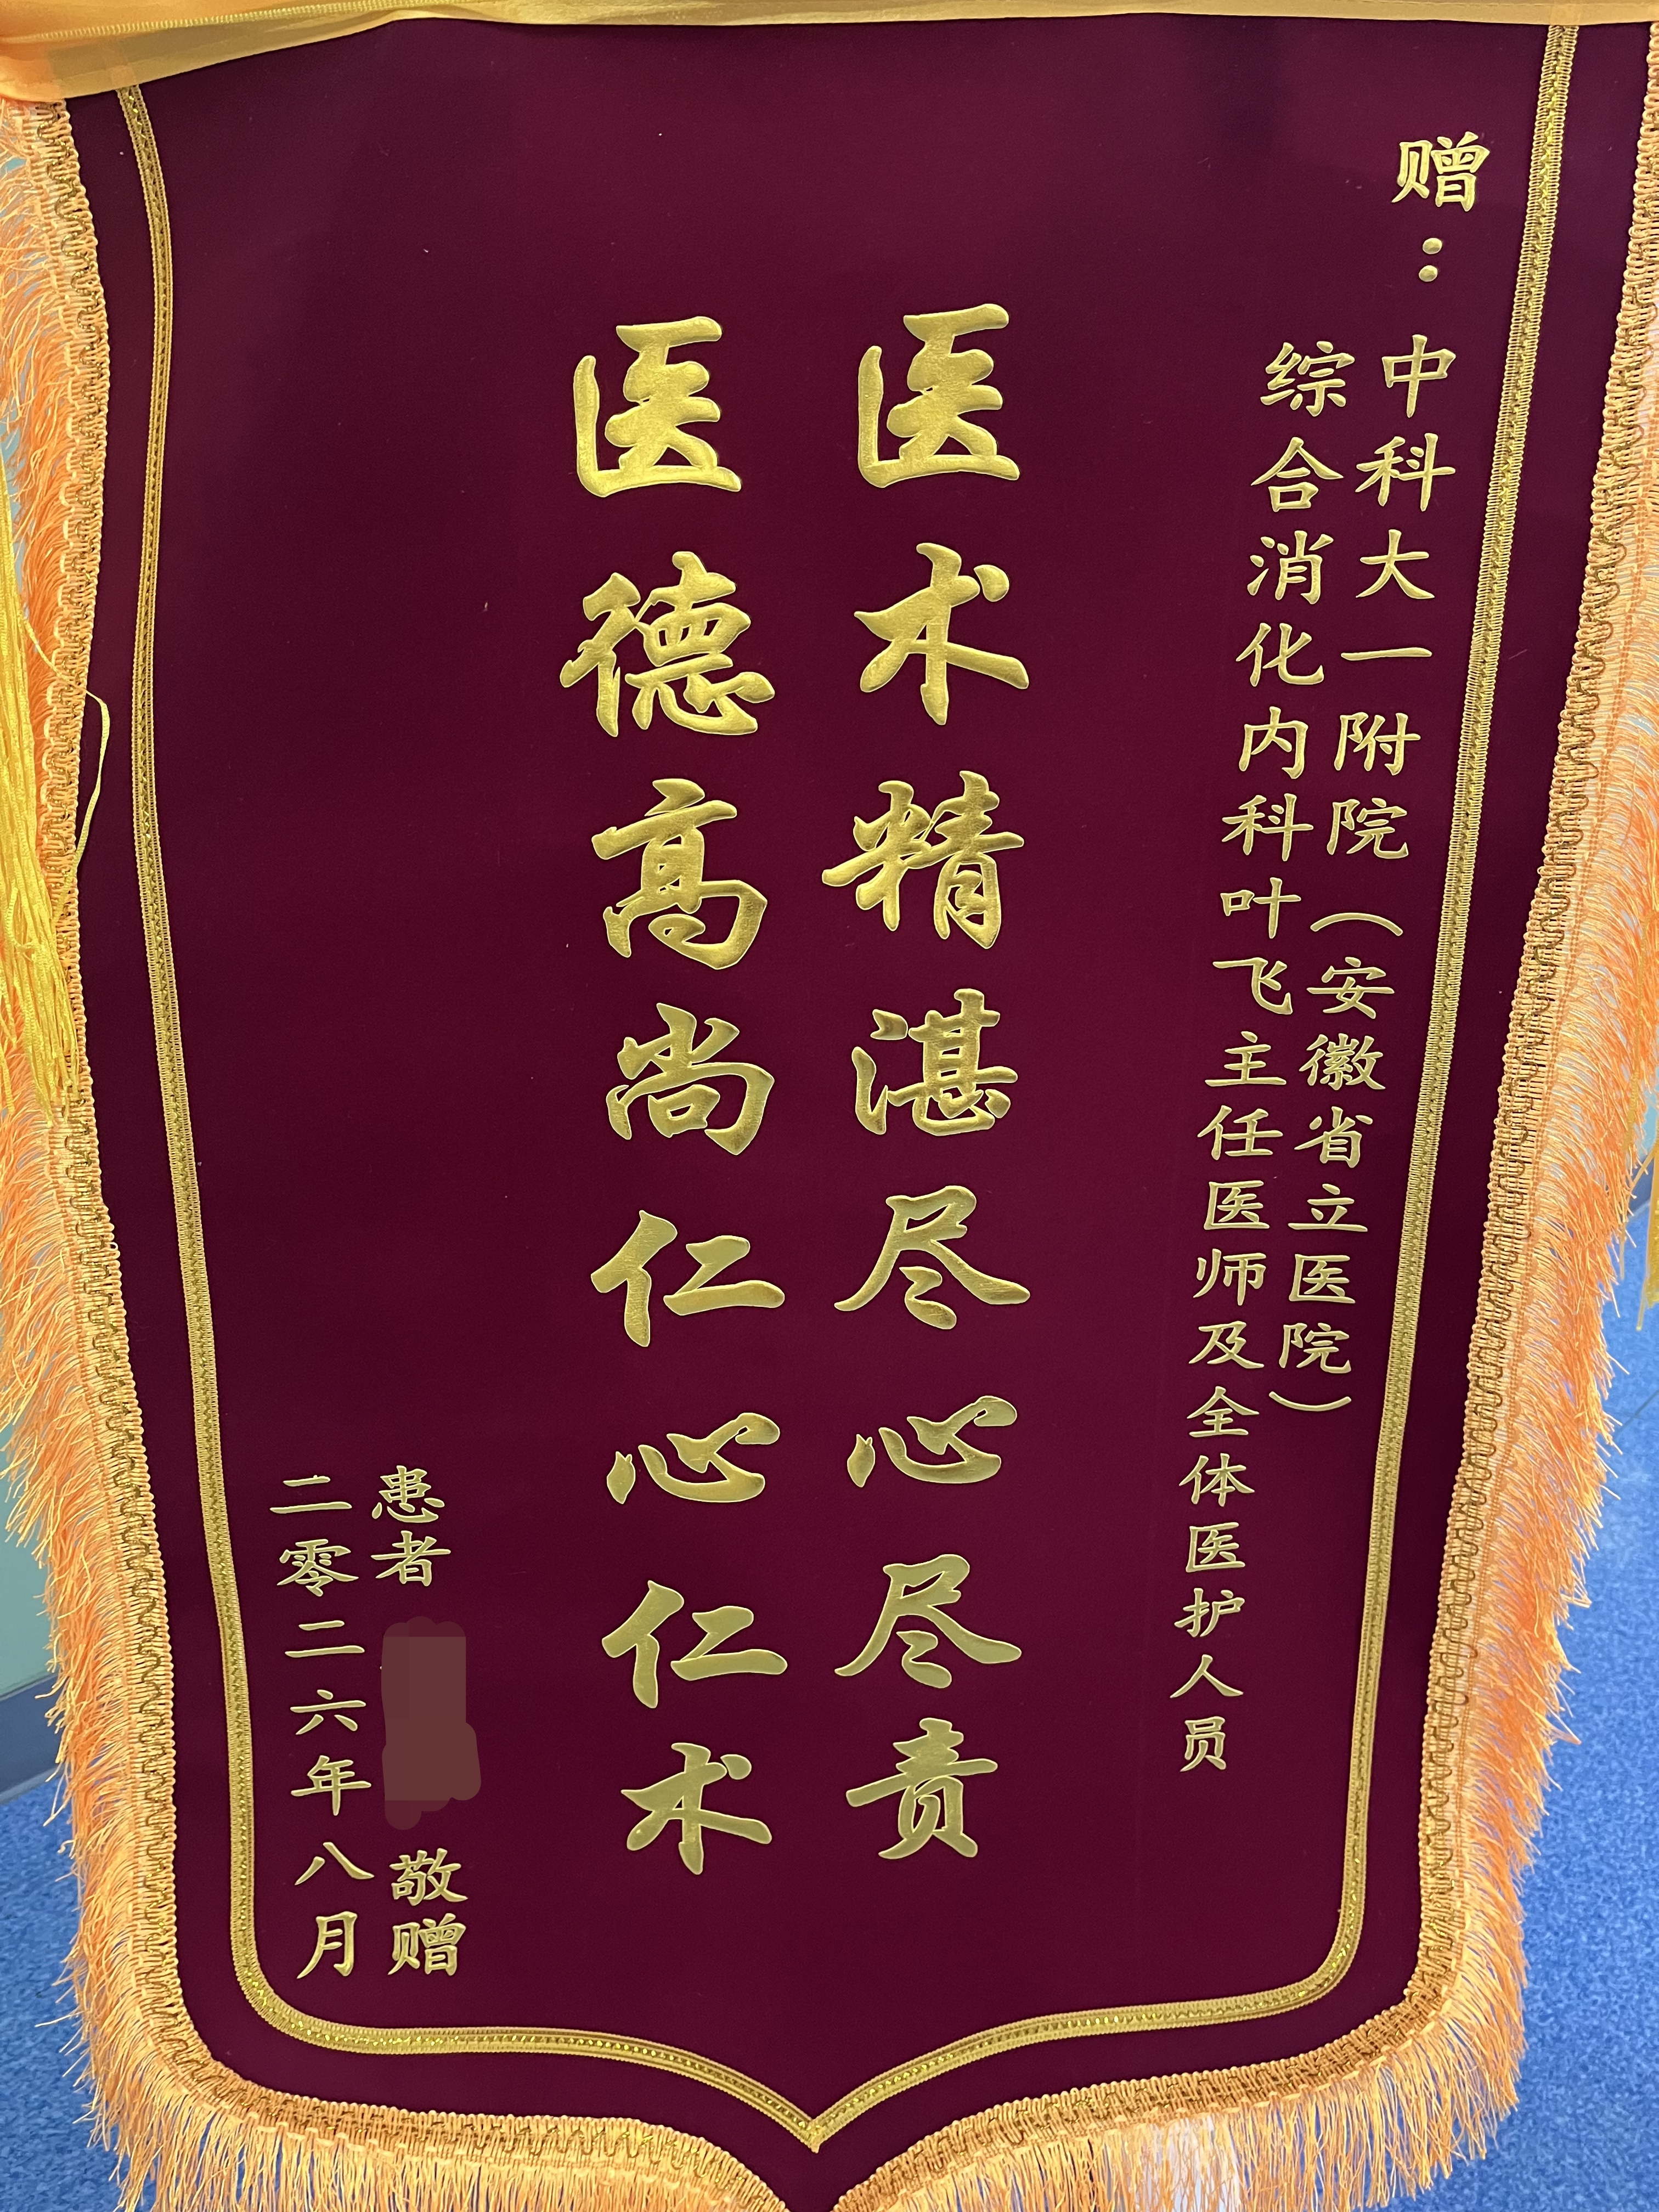 赠：
中科大一附院（安徽省立医院）
综合消化内科叶飞主任医师及全体医护人员
医术精湛尽心尽责
医德高尚仁心仁术
患者 敬赠
二零二六年八月